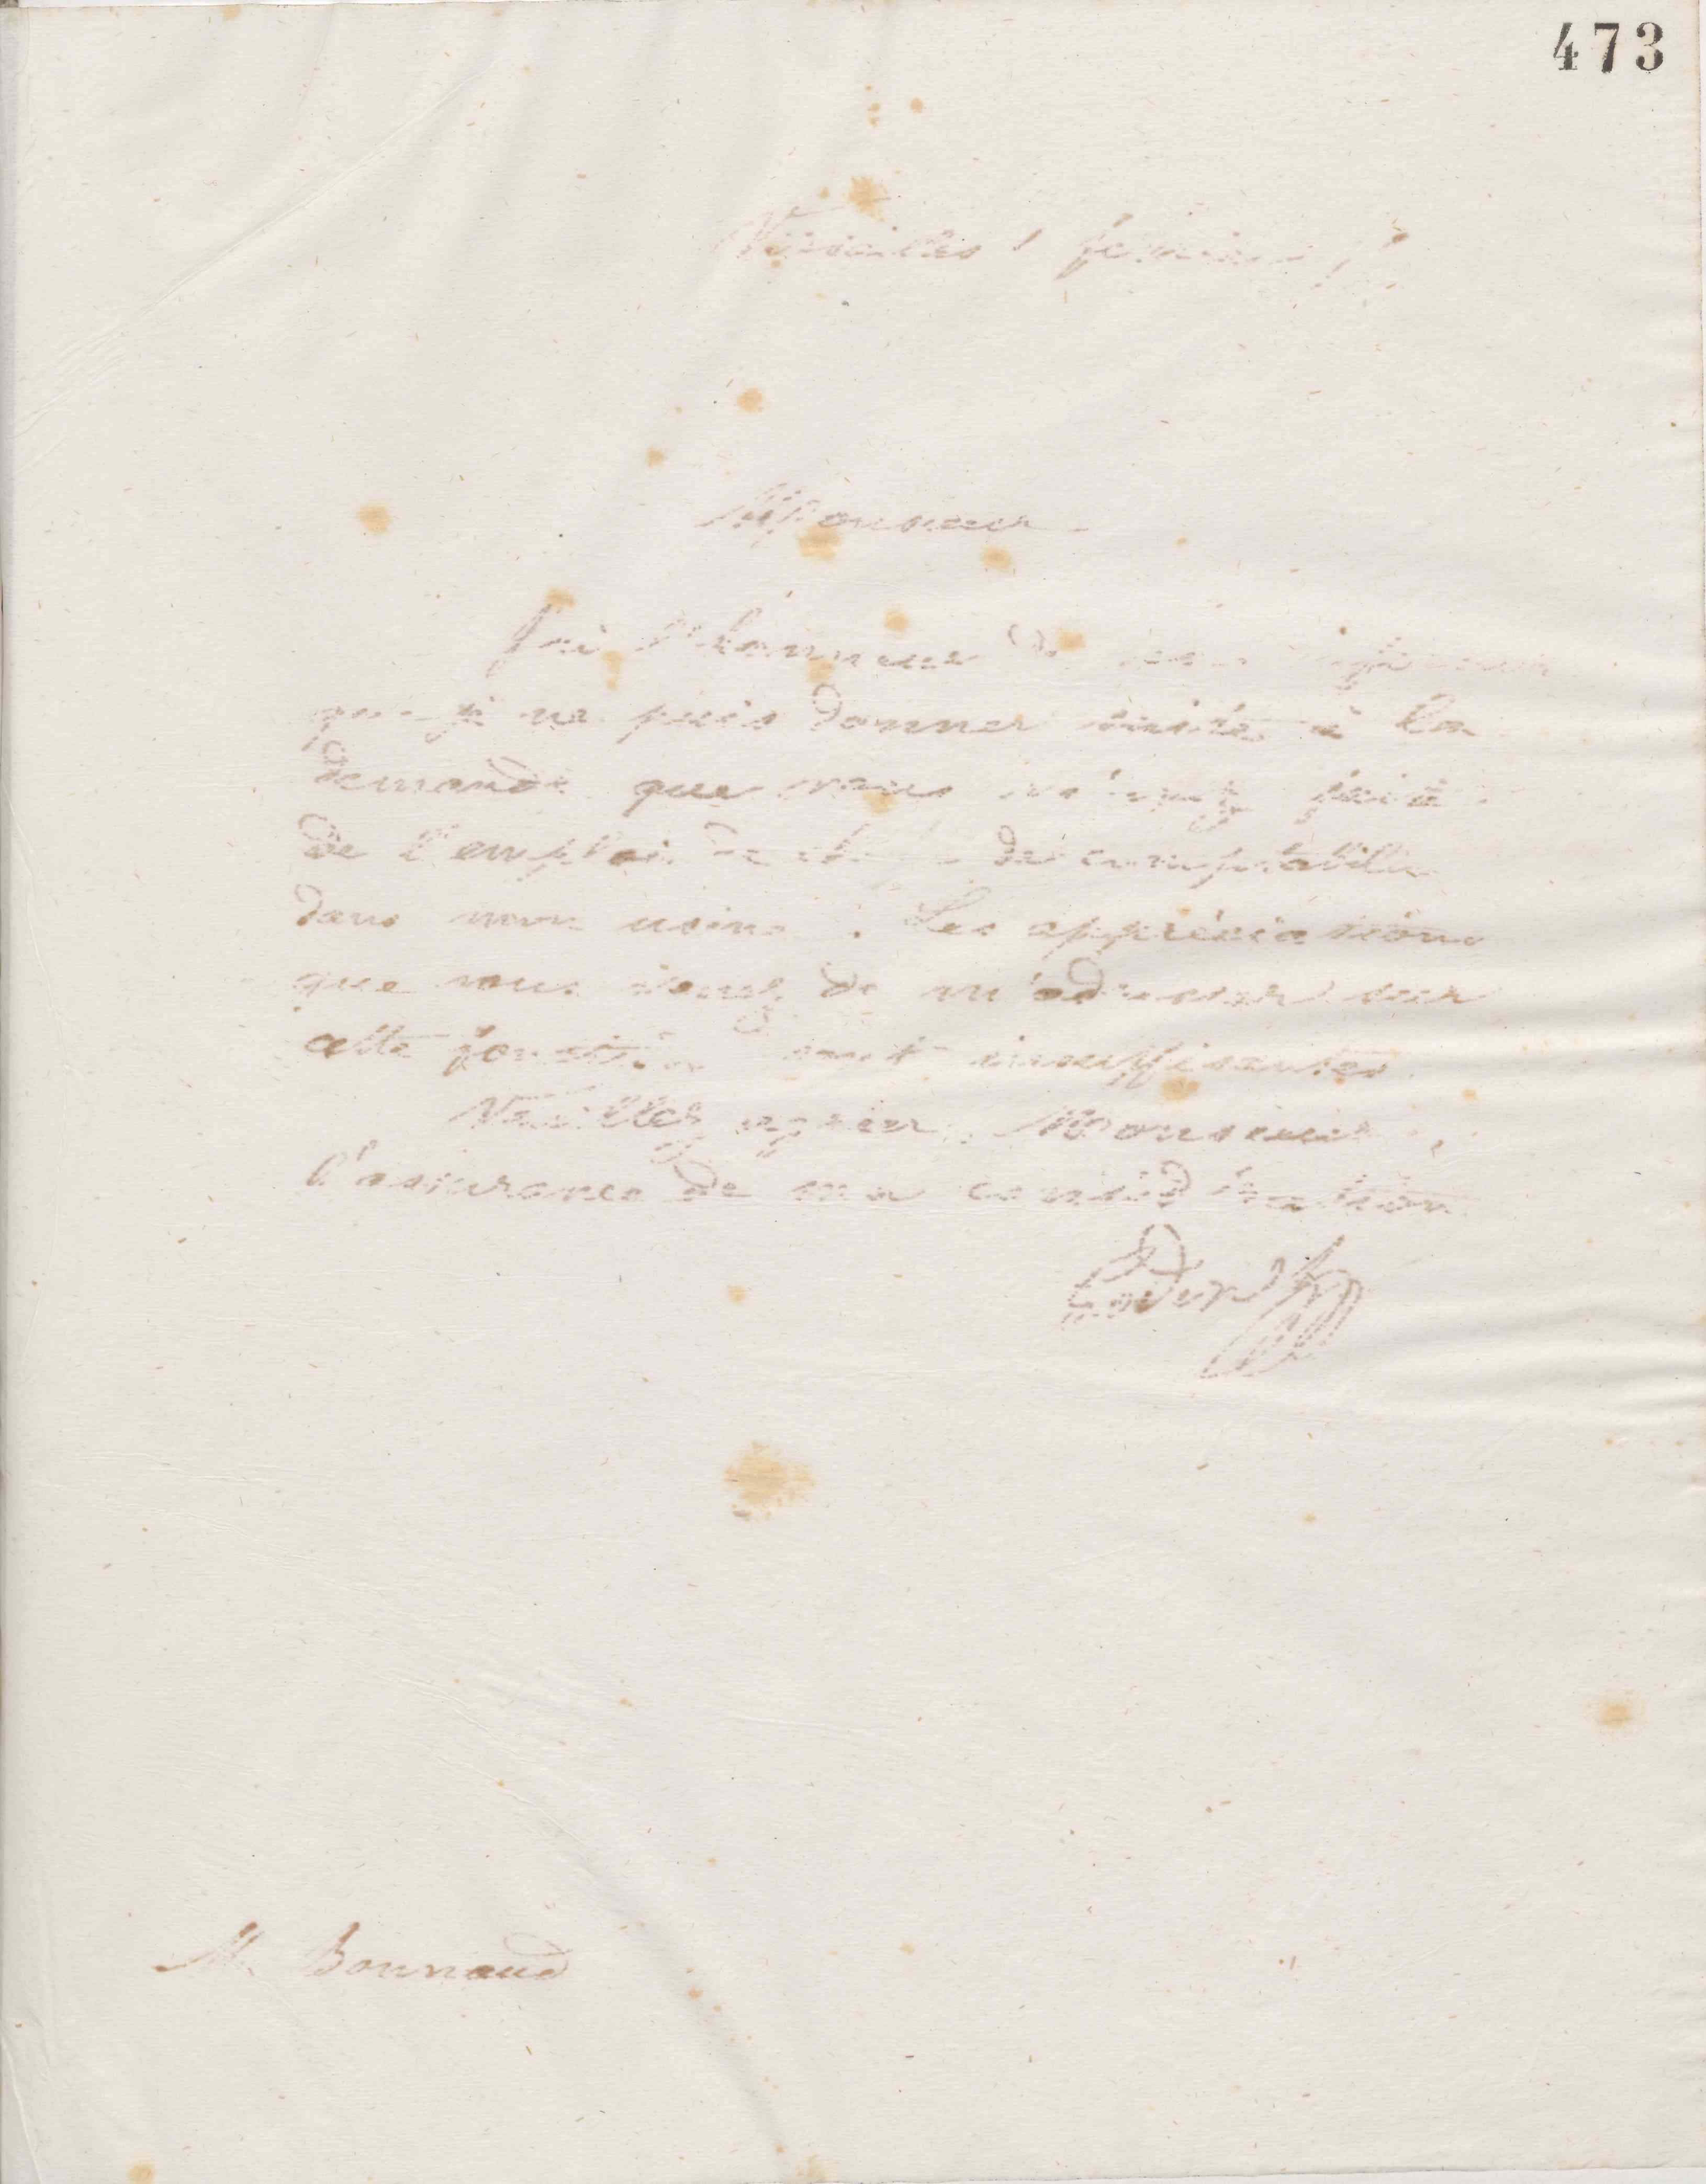 473
Versailles février
Monsieur
J'ai l'honneur de vous
que je ne puis donner suite à la
demande que vous m'avez faite
de l'emploi de de comptabilité
dans mon usine. Les appréciations
que vous venez de m'adresser sur
cette fonction sont insuffisantes.
Veuillez agréer, Monsieur,
l'assurance de ma considération
M. Bonnaud